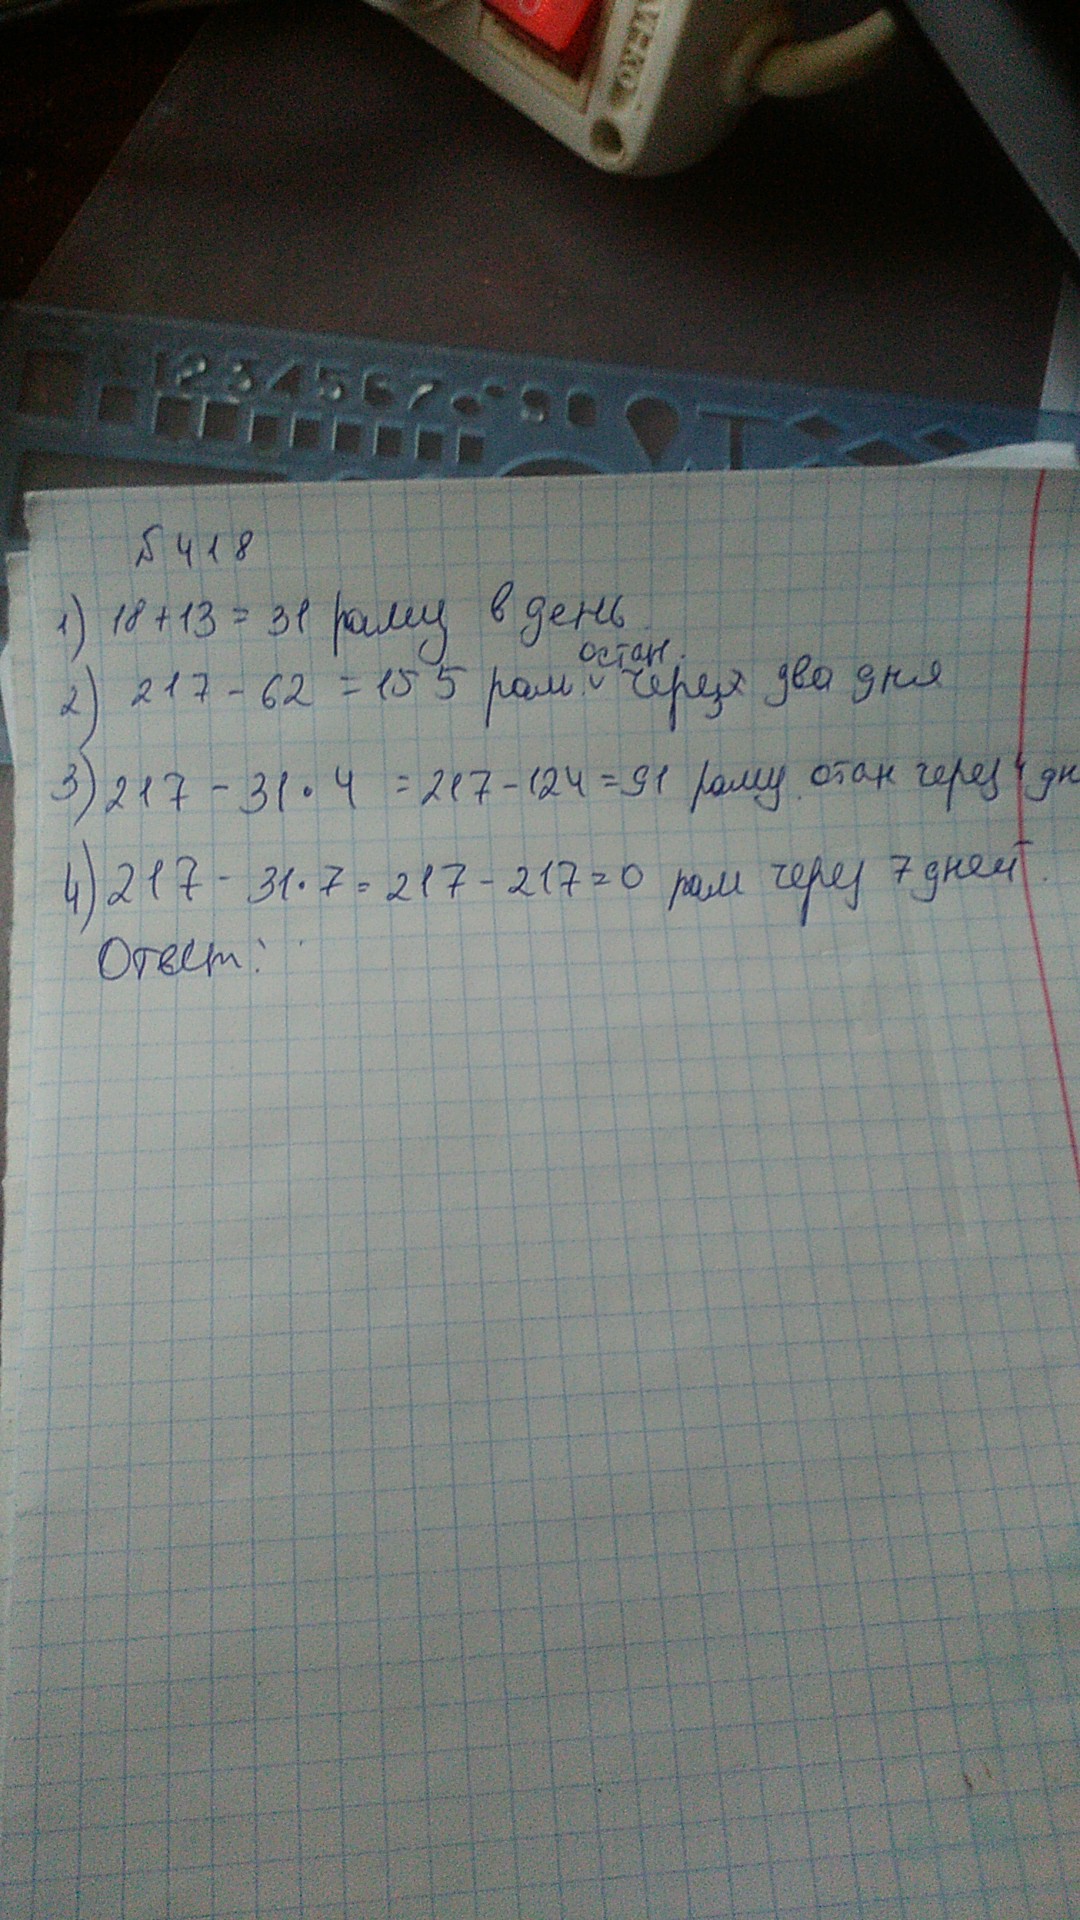 VERO
1234567890
№ 418
1) 18+13 = 31 раму в день.
остан.
2) 217 - 62 = 155 рам. ᵛ через два дня
3) 217 - 31 · 4 = 217 - 124 = 91 раму. отан через 4 дн
4) 217 - 31 · 7 = 217 - 217 = 0 рам через 7 дней.
Ответ: